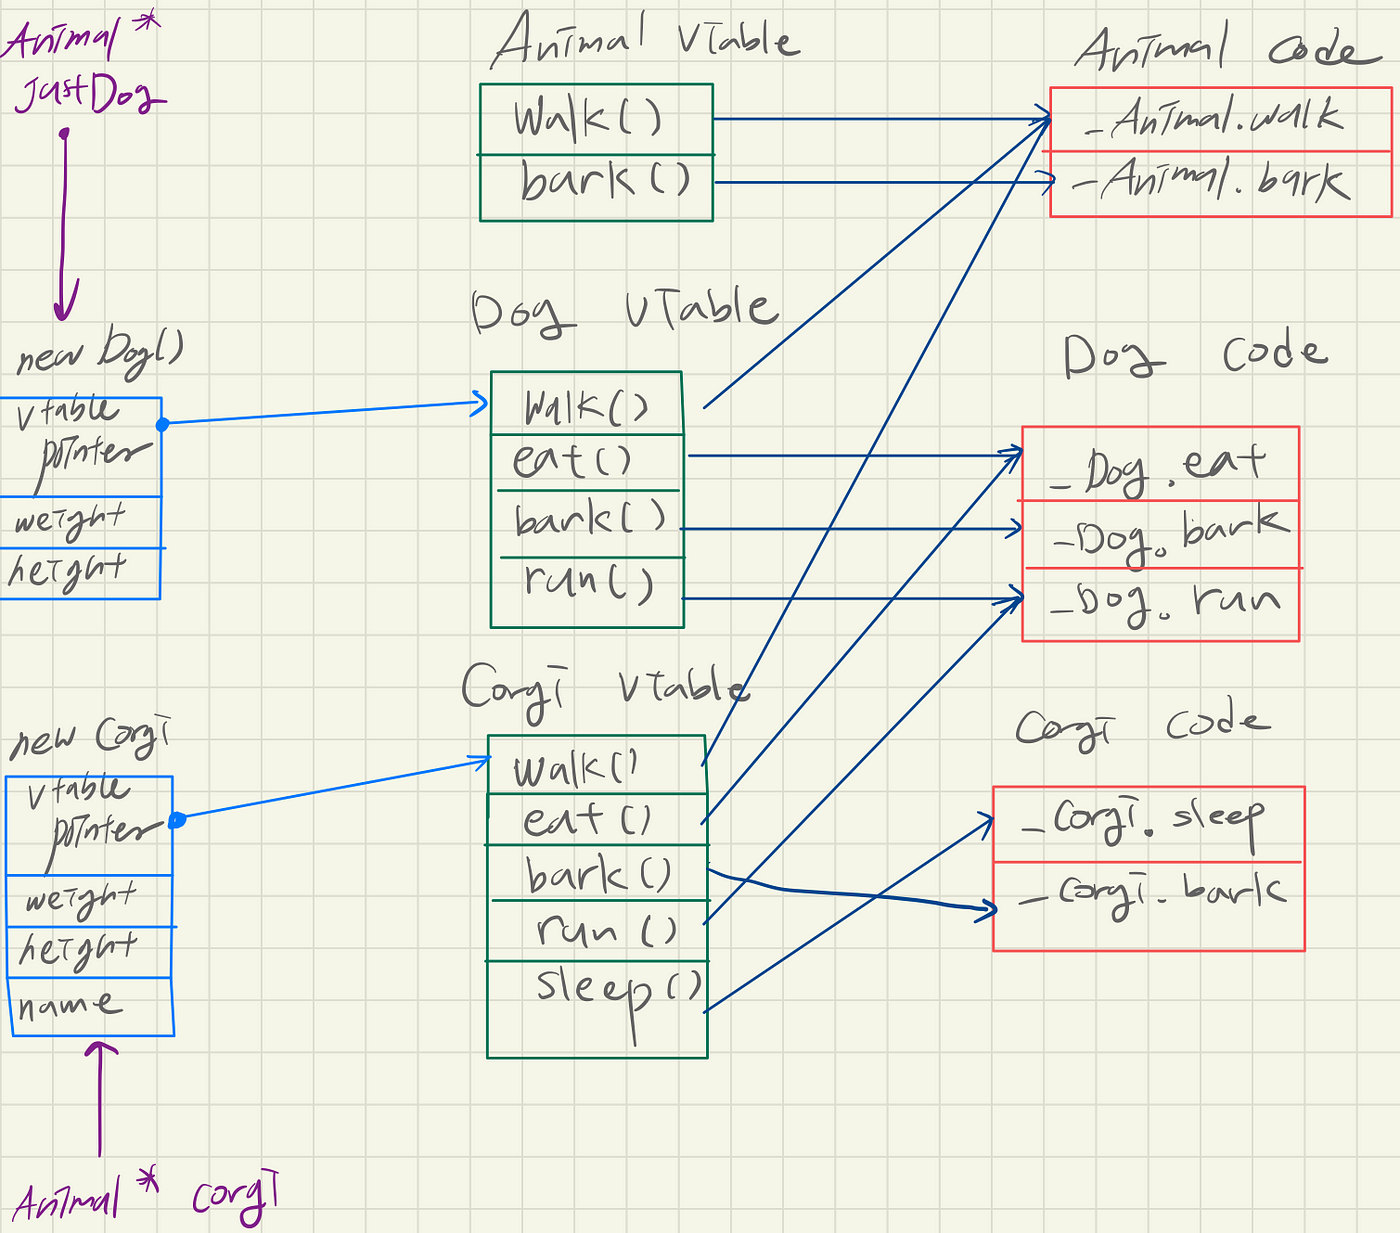 Animal *
JustDog
new Dog()
vtable
pointer
weight
height
new Corgi
vtable
pointer
weight
height
name
Animal * corgi
Animal vTable
Walk()
bark()
Dog vTable
Walk()
eat()
bark()
run()
Corgi vtable
walk()
eat()
bark()
run()
sleep()
Animal code
_Animal.walk
_Animal.bark
Dog code
_Dog.eat
_Dog.bark
_Dog.run
Corgi code
_Corgi.sleep
_Corgi.bark